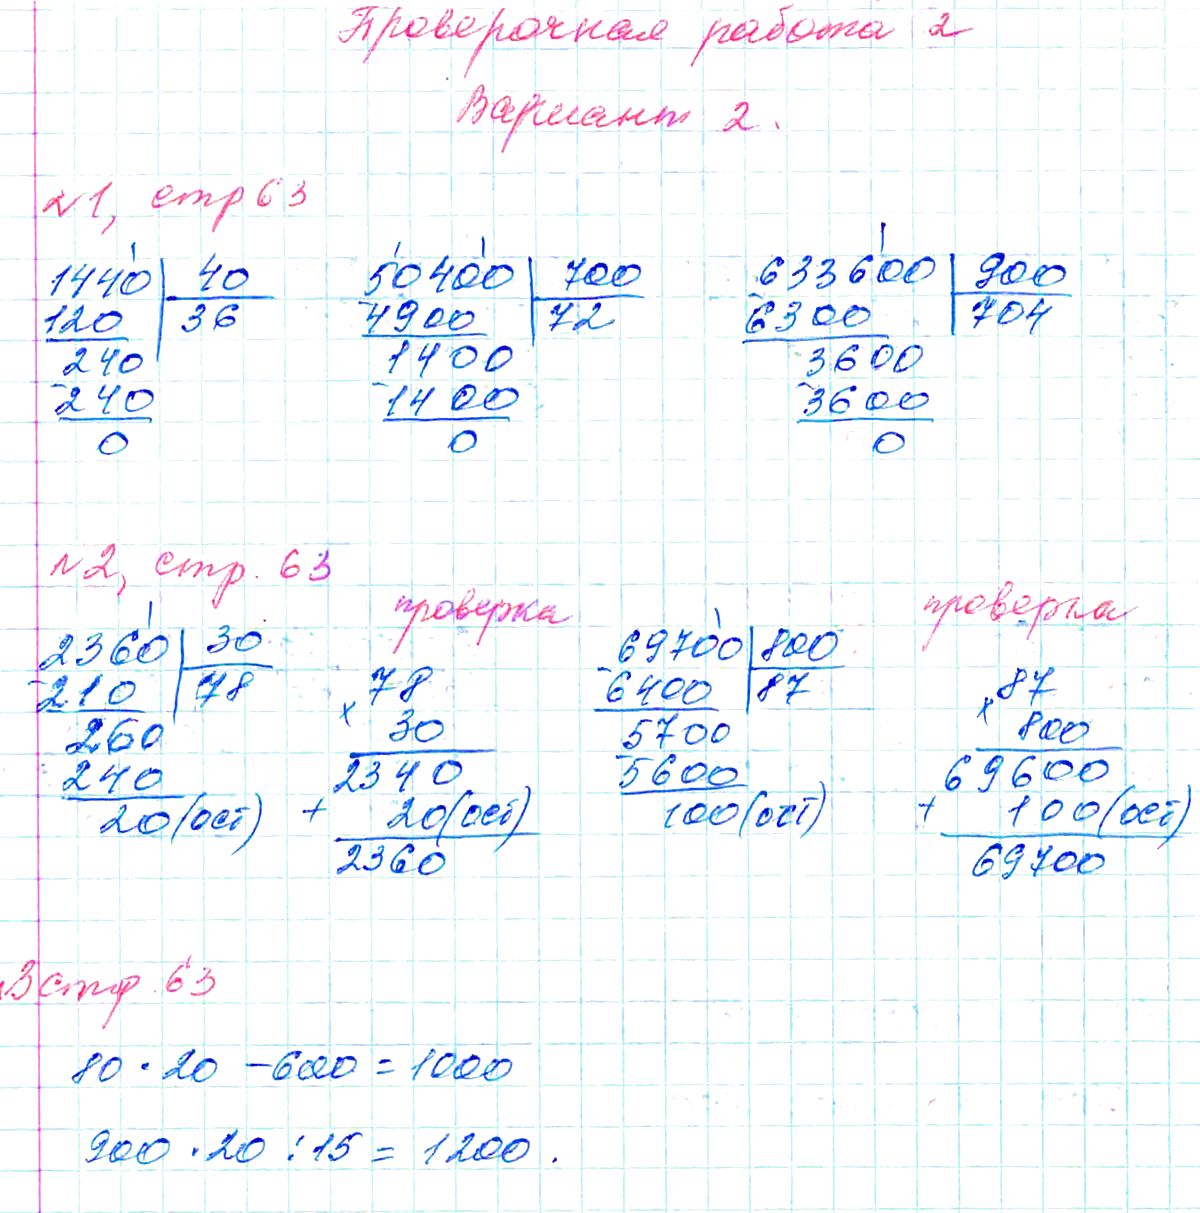 Проверочная работа 2
Вариант 2.
№1, стр 63
1440 | 40
120 | 36
240
-240
0
50400 | 700
-4900 | 72
1400
-1400
0
633600 | 900
-6300 | 704
3600
-3600
0
№2, стр. 63
2360 | 30
-210 | 78
260
240
20(ост)
проверка
78
×
30
2340
+ 20(ост)
2360
69700 | 800
-6400 | 87
5700
-5600
100(ост)
проверка
87
×
800
69600
+ 100(ост)
69700
№3 стр. 63
80 · 20 - 600 = 1000
900 · 20 : 15 = 1200.